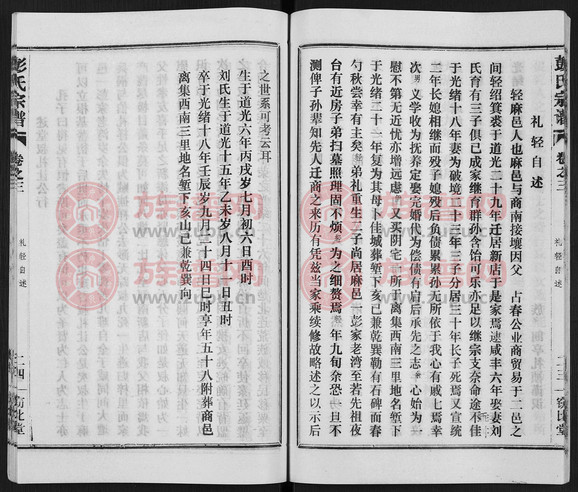 彭氏宗譜
卷之三
礼轻自述
二三
礼轻自述
轻麻邑人也麻邑与商南接壤因父
占春公业商贸易于二邑之
间轻绍箕裘于道光二十九年迁居新店于是家焉逮咸丰六年娶妻刘
氏育有三子俱已成家继育群孙含饴可乐亦足以继宗支奈命途不佳
于光绪十八年妻为破境二十三年三子分居三十年长子死焉又宣统
二年长媳相继而殁子媳殁后负债累累孙无所依于我心有戚七焉幸
次男义学收为抚养定娶完婚代为偿债有启后承先之志
心始为一
慰不第无近忧亦增远虑
又买阴宅一所于离集西南三里地名堑下
于光绪二十一年复为其母卜佳城葬堑下亥己兼乾巽勒有石碑而春
礿秋尝幸有主焉
弟礼重生二子尚居麻邑一彭家老湾至若先祖夜
台有近房子弟扫墓照理固不烦
为之细赘焉
年九旬余恐一旦不
测俾子孙辈知先人迁商之来历有凭兹当家乘续修故略述之以示后
之世系可考云耳
生于道光六年丙戌岁七月初六日酉时
刘氏生于道光十五年乙未岁八月十一日丑时
卒于光绪十八年壬辰岁九月二十四日巳时享年五十八附葬商邑
离集西南三里地名堑下亥山己兼乾巽向
彭氏宗譜
卷之三
礼轻自述
二四
族谱网